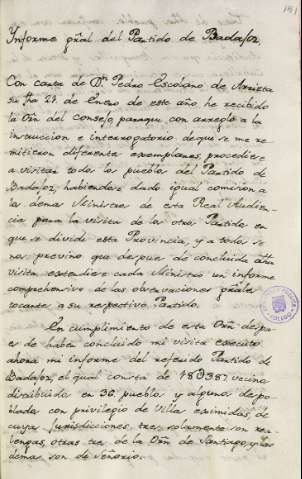 Informe gñal del Partido de Badajoz,
Con carta de Dn. Pedro Escolano de Arrieta
su fha 24 de Enero de este año, he recibido
la Orñ del Consejo paraque con arreglo a la
instruccion e interrogatorio de que se me re-
mitieron diferentes exemplares procediese
a visitar todos los pueblos del Partido de
Badajoz, habiendose dado igual comision a
los demas Ministros de esta Real Audien-
cia para la visita de los otros Partidos en
que se divide esta Provincia, y a todos se
nos previno que despues de concluida dha
visita estendiese cada Ministro un informe
comprehensivo de las observaciones gñales
tocante a su respectivo Partido.
En cumplimiento de esta Orñ despu-
es de haber concluido mi visita executo
ahora mi informe del referido Partido de
Badajoz, el qual consta de vecinos
distribuidos en 36 pueblos y algunos despo-
blados con privilegio de Villas eximidas, de
cuyas jurisdicciones, tres solamente son rea-
lengas, otras tres de la Orñ de Santiago, y las
demas son de Señorio.